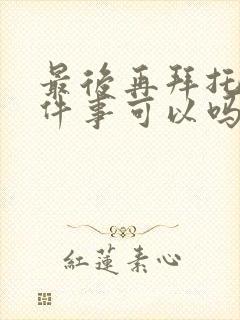 最後再拜托
件事可以吗
紅蓮素心